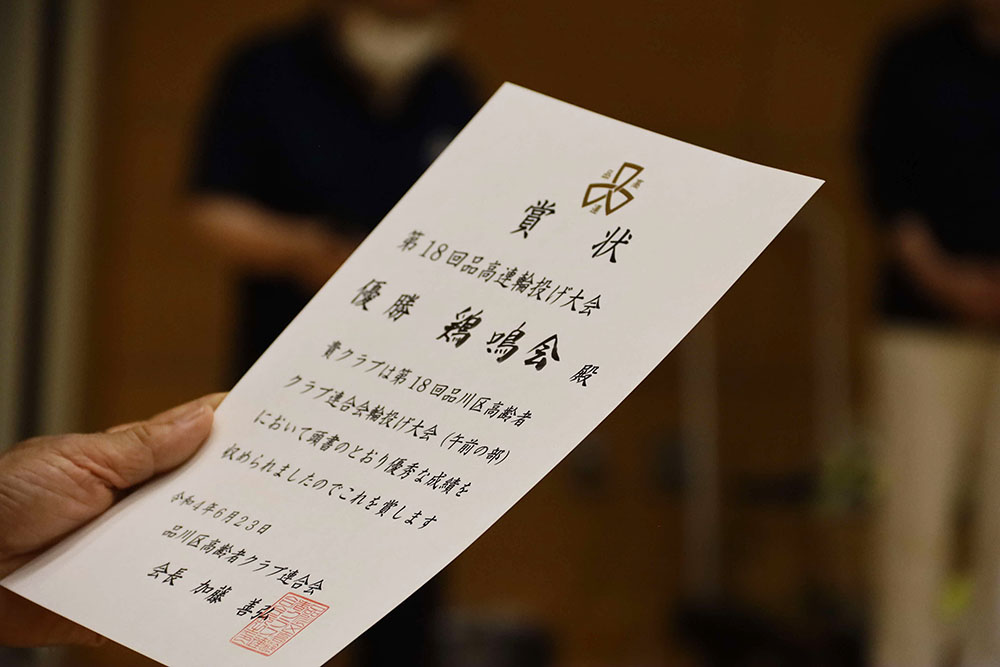 品高連
賞状
第18回品高連輪投げ大会
優勝 鶏鳴会 殿
貴クラブは第18回品川区高齢者
クラブ連合会輪投げ大会(午前の部)
において頭書のとおり優秀な成績を
収められましたのでこれを賞します
令和4年6月23日
品川区高齢者クラブ連合会
会長 加藤 善弘